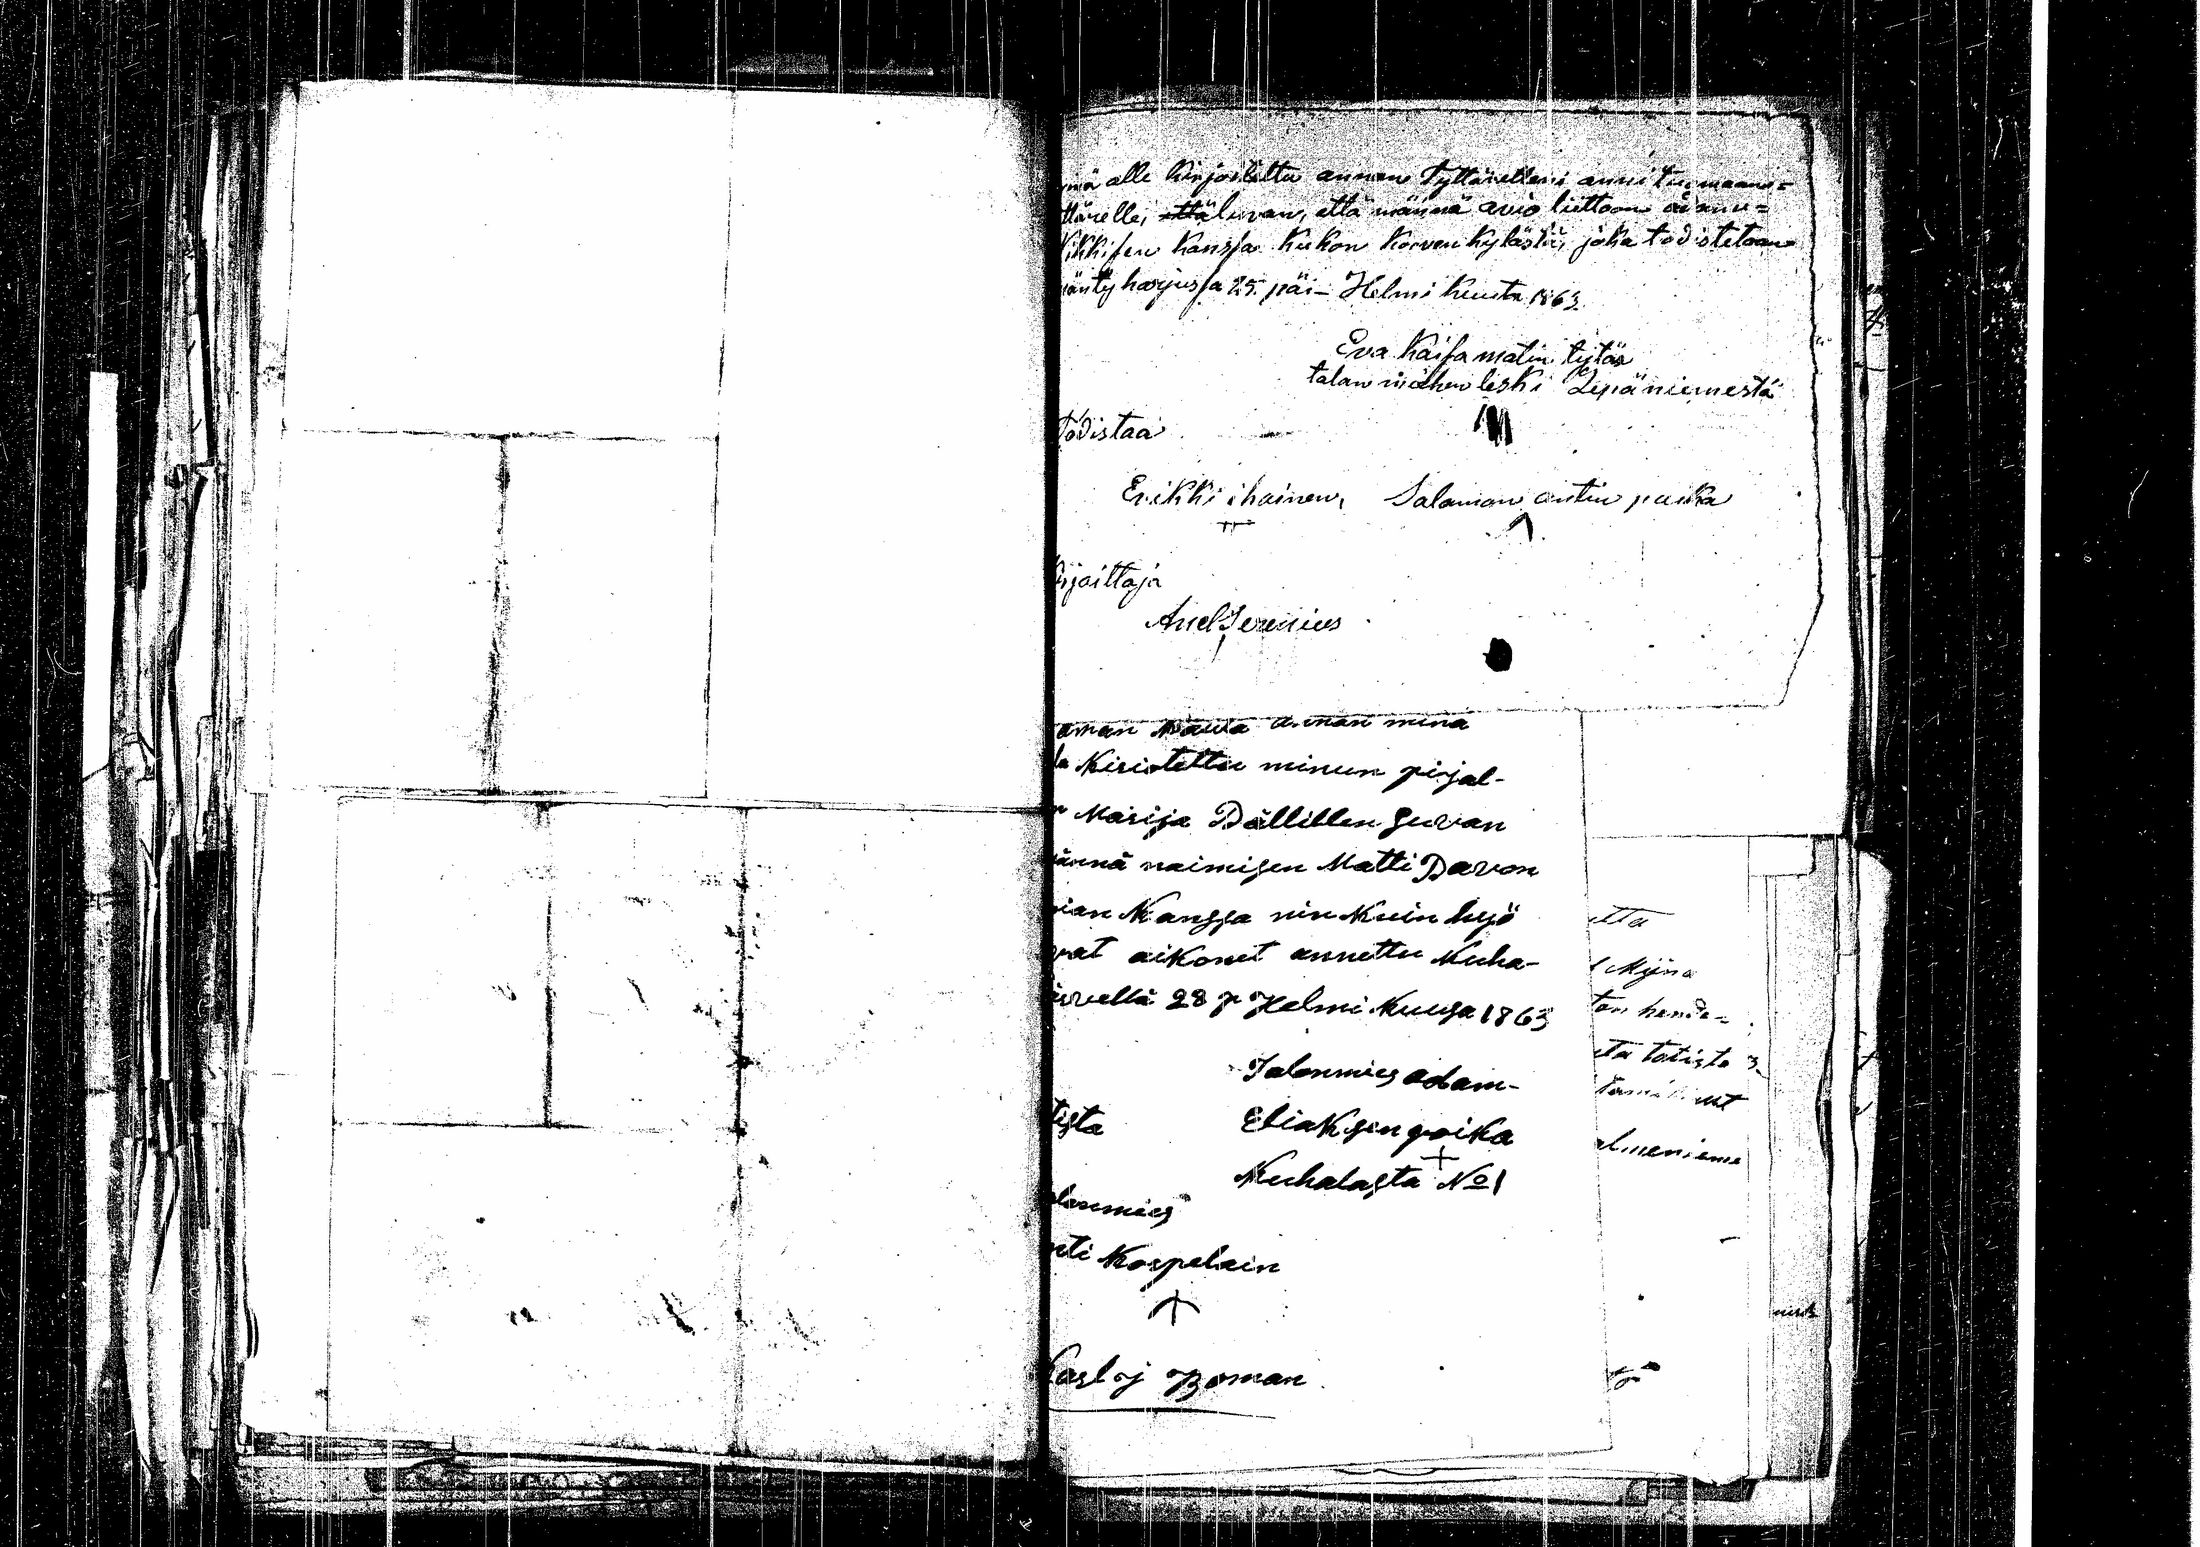 nä alle kirjoitettu annan tyttärelleni anni tuomaan=
ttärelle, että luvan, että männä avio liittoon
kikkisen kanssa kukon korven kylästä, joka todistetaan
änty harjussa 25. päi- Helmi kuuta 1863.
Eva kaisa matin tytär
talan miehen leski Lepäniemestä
Todistaa
Erikki ihainen, Salamon antin poika
rjoittaja
Axel Serenius
aman kauta annan minä
la kiriotettu minun pirjal-
n Marija Pällillen Luvan
männä naimisen Matti Pavon
jan kanssa nin kuin hyö
vat aikonet annettu kuha-
ärvellä 28 p Helmi kuusa 1863
Talonmies adam-
tista Eliaksen poika
+
kuhalasta No 1
alonmies
nti korpelain
Karl J Boman
etta
l Mijna
ton hende=
eta totista
almenieme